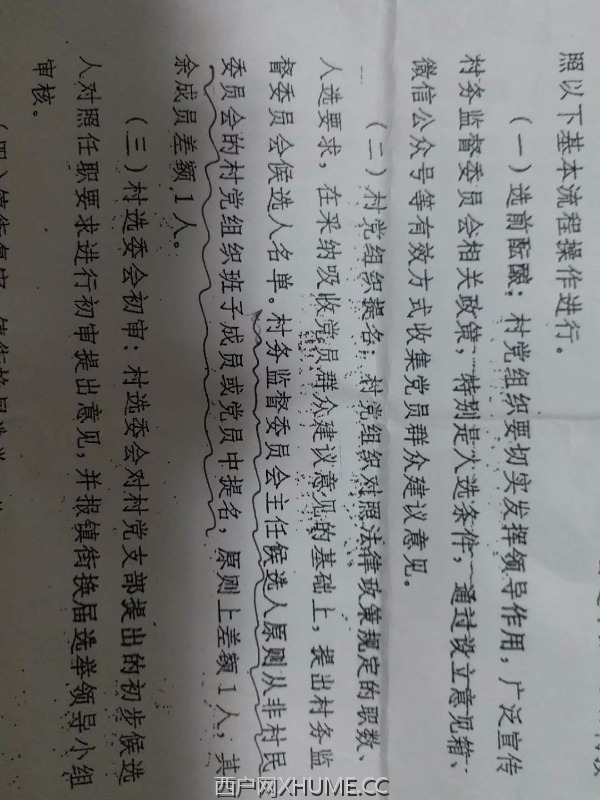 照以下基本流程操作进行。
（一）选前酝酿：村党组织要切实发挥领导作用，广泛宣传
村务监督委员会相关政策，特别是人选条件，通过设立意见箱、
微信公众号等有效方式收集党员群众建议意见。
（二）村党组织提名：村党组织对照法律政策规定的职数、
人选要求，在采纳吸收党员群众建议意见的基础上，提出村务监
督委员会候选人名单。村务监督委员会主任候选人原则从非村民
委员会的村党组织班子成员或党员中提名，原则上差额1人，其
余成员差额1人。
（三）村选委会初审：村选委会对村党支部提出的初步候选
人对照任职要求进行初审提出意见，并报镇街换届选举领导小组
审核。
西户网XHUME.CC